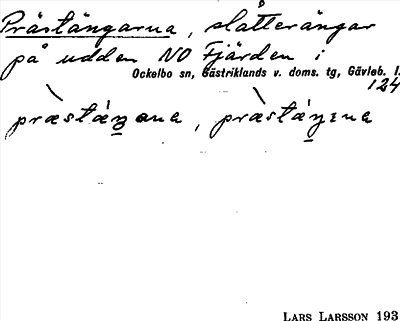 Prästängarna, slåtterängar
på udden NO Fjärden i
Ockelbo sn, Gästriklands v. doms. tg, Gävleb. l.
124
præstáŋana, præstáŋɪna
LARS LARSSON 193